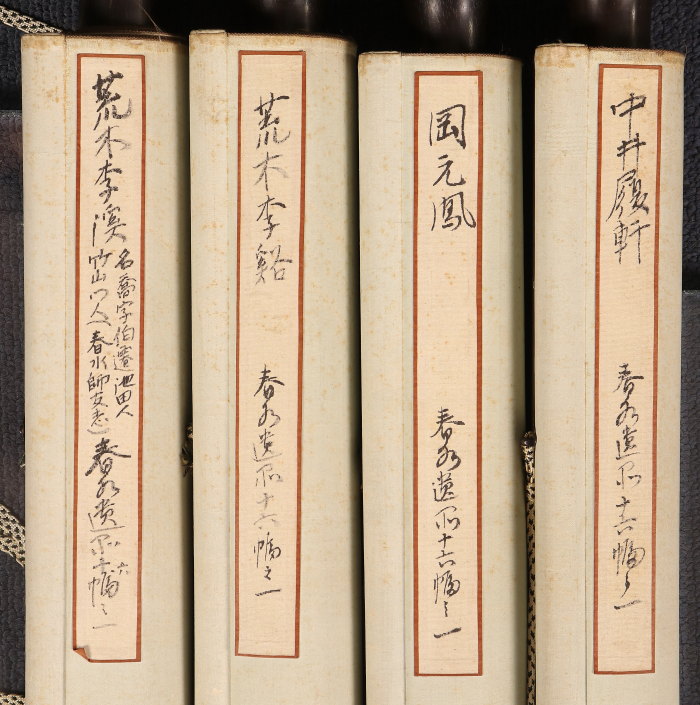 中井履軒
春水遺品十六幅之一
岡元鳳
春水遺品十六幅之一
荒木李谿
春水遺品十六幅之一
荒木李溪
名喬字伯遷池田人
竹山門人(春水師友志)
春水遺品十六幅之一